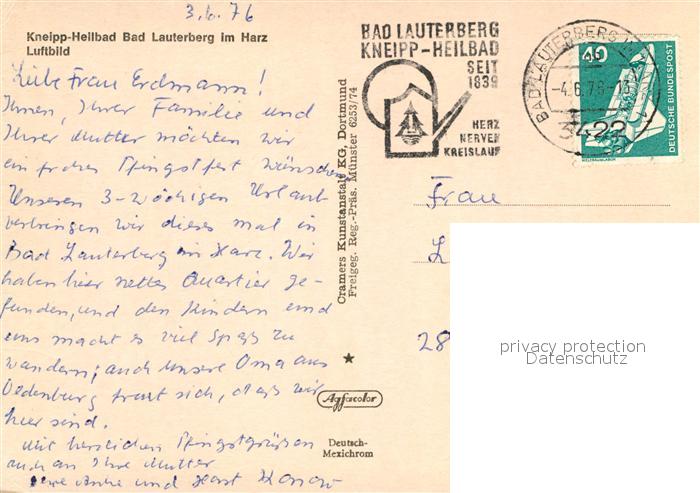 3.6.76
Kneipp-Heilbad Bad Lauterberg im Harz
Luftbild
Liebe Frau Erdmann!
Ihnen, Ihrer Familie und
Ihrer Mutter möchten wir
ein frohes Pfingstfest wünschen
Unseren 3-wöchigen Urlaub
verbringen wir dieses mal in
Bad Lauterberg im Harz. Wir
haben hier nettes Quartier ge-
funden, und den Kindern und
uns macht es viel Spaß zu
wandern; auch unsere Oma aus
Oldenburg freut sich, daß wir
hier sind.
Mit herzlichen Pfingstgrüßen
auch an Ihre Mutter
und Horst
Cramers Kunstanstalt KG, Dortmund
Freigeg. Reg.-Präs. Münster 6253/74
Agfacolor
Deutsch-
Mexichrom
BAD LAUTERBERG
KNEIPP-HEILBAD
SEIT
1839
HERZ
NERVEN
KREISLAUF
BAD LAUTERBERG
-4.6.76-13
3422
40
DEUTSCHE BUNDESPOST
WELTRAUMLABOR
Frau
L
28
privacy protection
Datenschutz